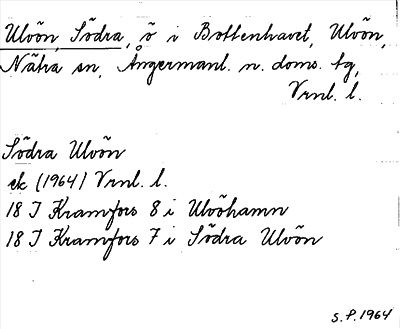 Ulvön, Södra, ö i Bottenhavet, Ulvön,
Nätra sn, Ångermanl. n. doms. tg,
Vrnl. l.
Södra Ulvön
ek (1964) Vrnl. l.
18 J Kramfors 8 i Ulvöhamn
18 J Kramfors 7 i Södra Ulvön
S.P. 1964